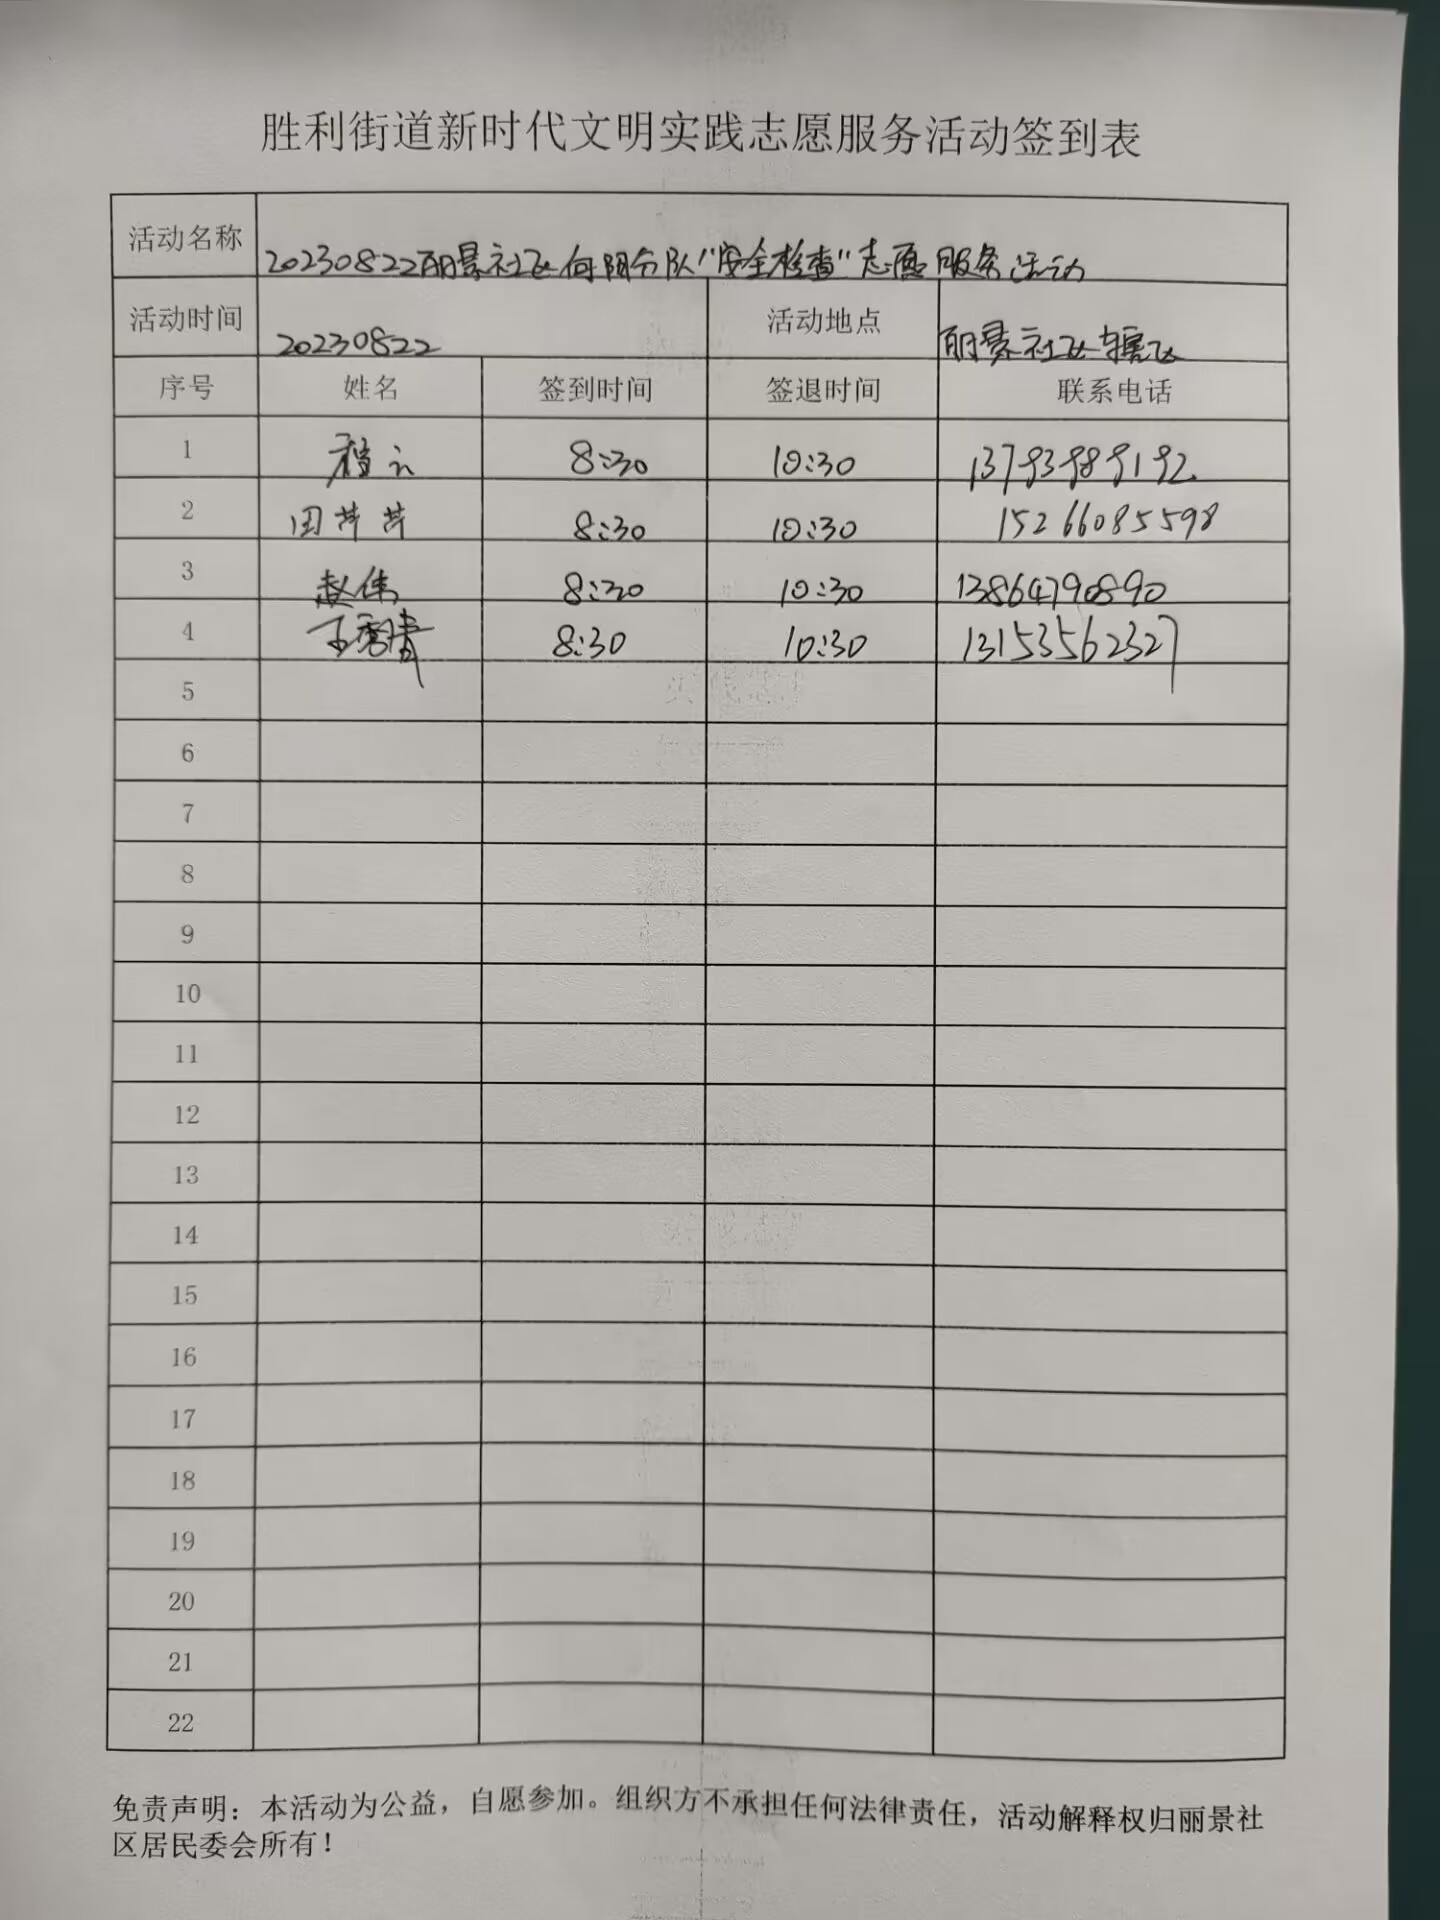 胜利街道新时代文明实践志愿服务活动签到表
活动名称 20230822丽景社区向阳分队"安全检查"志愿服务活动
活动时间 20230822 活动地点 丽景社区辖区
序号 姓名 签到时间 签退时间 联系电话
1 8:30 10:30 13793989192
2 田芹芹 8:30 10:30 15266085598
3 赵伟 8:30 10:30 13864790890
4 王秀清 8:30 10:30 13153562327
5
6
7
8
9
10
11
12
13
14
15
16
17
18
19
20
21
22
免责声明：本活动为公益，自愿参加。组织方不承担任何法律责任，活动解释权归丽景社
区居民委会所有！